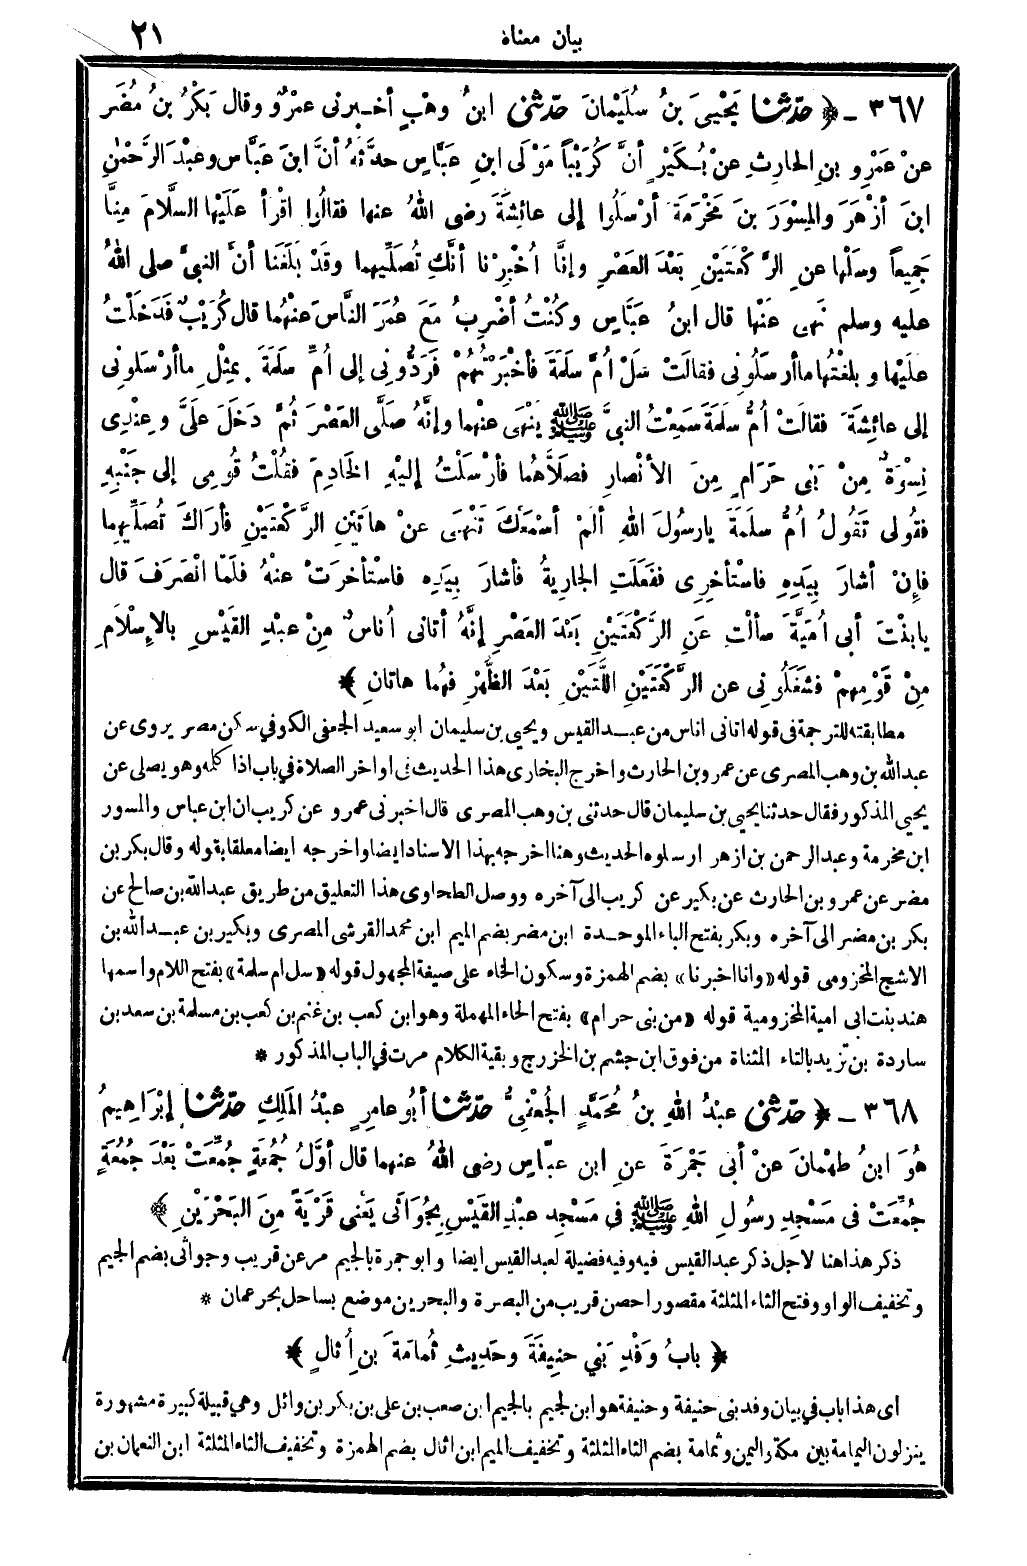 بيان معناه
٢١
٣٦٧ ـ ﴿ حدّثنا يَحْيىَ بنُ سُلَيْمانَ حدّثني ابنُ وهْبٍ أخـبرنى عمْرٌو وقال بَكْرُ بنُ مُضَر
عنْ عَمْرِو بنِ الحارِثِ عنْ بُـكَيْرٍ أنَّ كُرَيْباً مَوْلَى ابنِ عَبَّاسٍ حدَّثهُ أنَّ ابنَ عَبَّاسٍ وعبْدَ الرَّحْمٰنِ
ابنَ أزْهَرَ والمِسْوَرَ بنَ مَخْرَمَةَ أرْسَلُوا إلى عائِشةَ رضى اللهُ عنها فقالُوا اقْرأ عَلَيْها السلَّامَ مِنَّا
جَمِيعاً وسَلْها عنِ الرَّكْعَتَيْنِ بَعْدَ العَصْرِ وإنَّا أُخْبِرْنا أنَّكِ تُصَلِّيهِما وقَدْ بلَغَنا أنَّ النبيَّ صلى اللهُ
عليه وسلم نَهى عَنْها قال ابنُ عَبَّاسٍ وكُنْتُ أضْرِبُ مَعَ عُمَرَ النَّاسَ عنْهُما قال كُرَيْبٌ فَدَخَلْتُ
علَيْها وبلغْتُها ما أرسَلُونِى فقالَتْ سَلْ أُمَّ سلَمَةَ فأخْبَرْتُهُمْ فَرَدُّونِى إلى أُمِّ سلَمَةَ بِمِثْلِ ما أرْسَلونِى
إلى عائِشةَ فقالَتْ أُمُّ سلَمَةَ سَمِعْتُ النبيَّ ﷺ يَنْهَى عنْهما وإنَّهُ صلَّى العَصْرَ ثُمَّ دَخَلَ علَىَّ وعِنْدِى
نِسْوَةٌ مِنْ بَنى حَرَامٍ مِنَ الأنْصارِ فصَلَّاهُما فأرْسَلْتُ إليْهِ الخادِمَ فقُلْتُ قُومِى إلى جَنْبِهِ
فقُولى تَقُولُ أُمُّ سلَمَةَ يارسُولَ اللهِ ألَمْ أسْمَعْكَ تَنْهَى عنْ هاتَيْنِ الرَّكْعَتَيْنِ فأرَاكَ تُصَلِّيهِما
فإِنْ أشارَ بِيَدِهِ فاسْتأخِرِى ففَعَلَتِ الجارِيةُ فأشارَ بِيَدِهِ فاسْتأخرَتْ عنْهُ فلَمَّا انْصَرَفَ قال
يابِنْتَ أبى أُمَيَّةَ سألْتِ عَنِ الرَّكْعَتَيْنِ بَعْدَ العَصْرِ إنَّهُ أتانى أُناسٌ مِنْ عبْدِ القَيْسِ بالإِسْلَامِ
مِنْ قَوْمِهِمْ فشَغَلُونِى عن الرَّكْعَتَيْنِ اللَّتَيْنِ بَعْدَ الظُّهْرِ فَهُما هاتانِ ﴾
مطابقته للترجمة فى قوله اتانى اناس من عبـد القيس ويحيى بن سليمان ابو سعيد الجعفى الكوفي سكن مصر يروى عن
عبد الله بن وهب المصرى عن عمرو بن الحارث واخرج البخارى هذا الحديث فى اواخر الصلاة في باب اذا كله وهو يصلى عن
يحيى المذكور فقال حدثنا يحيى بن سليمان قال حدثنى بن وهب المصرى قال اخبرنى عمرو عن كريب ان ابن عباس والمسور
ابن مخرمة وعبد الرحمن بن ازهر ارسلوه الحديث وهنا اخرجه بهذا الاسناد ايضا واخرجه ايضا معلقا بقوله وقال بكر بن
مضر عن عمرو بن الحارث عن بكير عن كريب الى آخره ووصل الطحاوى هذا التعليق من طريق عبد الله بن صالح عن
بكر بن مضر الى آخره وبكر بفتح الباء الموحـدة ابن مضر بضم الميم ابن محمد القرشى المصرى وبكير بن عبـد الله بن
الاشج المخزومى قوله «وانا اخبرنا» بضم الهمزة وسكون الخاء على صيغة المجهول قوله «سل ام سلمة» بفتح اللام واسمها
هند بنت ابى امية المخزومية قوله «من بنى حرام» بفتح الحاء المهملة وهو ابن كعب بن غنم بن كعب بن مسلمة بن سعد بن
ساردة بن تزيد بالتاء المثناة من فوق ابن جشم بن الخزرج وبقية الكلام مرت في الباب المذكور *
٣٦٨ ـ ﴿ حدّثني عبْدُ اللهِ بنُ مُحَمَّدٍ الجُعْفِىُّ حدّثنا أبُو عامِرٍ عبْدُ المَلِكِ حدّثنا إبْرَاهِيمُ
هُوَ ابنُ طهْمانَ عنْ أبى جَمْرَةَ عنِ ابن عبّاسٍ رضى اللهُ عنهما قال أوَّلُ جُمُعَةٍ جُمِّعَتْ بَعْدَ جُمُعَةٍ
جُمِّعَتْ فى مَسْجِدِ رسُولِ اللهِ ﷺ في مَسْجِدِ عبْدِ القَيْسِ بِجُوَاثَى يَعْنِى قَرْيَةً مِنَ البَحْرَيْنِ ﴾
ذكر هذا هنا لاجل ذكر عبد القيس فيه وفيه فضيلة لعبد القيس ايضا وابو جمرة بالجيم مر عن قريب وجواثى بضم الجيم
وتخفيف الواو وفتح الثاء المثلثة مقصورا حصن قريب من البصرة والبحرين موضع بساحل بحر عمان *
﴿ بابُ وَفْدِ بَنِي حنِيفَةَ وحَدِيثِ ثُمامَةَ بنِ أُثالٍ ﴾
اى هذا باب في بيان وفد بنى حنيفة وحنيفة هو ابن لجيم بالجيم ابن صعب بن على بن بكر بن وائل وهي قبيلة كبيرة مشهورة
ينزلون اليمامة بين مكة واليمن وثمامة بضم الثاء المثلثة وتخفيف الميم ابن اثال بضم الهمزة وتخفيف الثاء المثلثة ابن النعمان بن